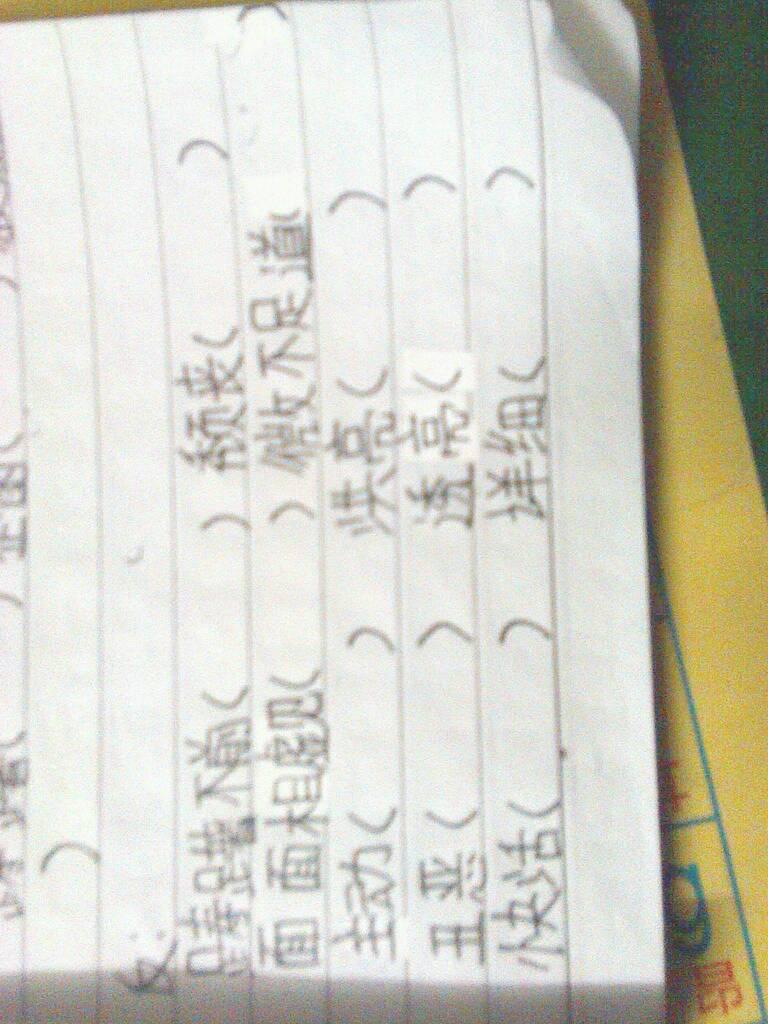 )
反:
踌躇不前( ) 颓丧( )
面面相觑( ) 微不足道( )
主动( ) 洪亮( )
丑恶( ) 透亮( )
快活( ) 详细( )